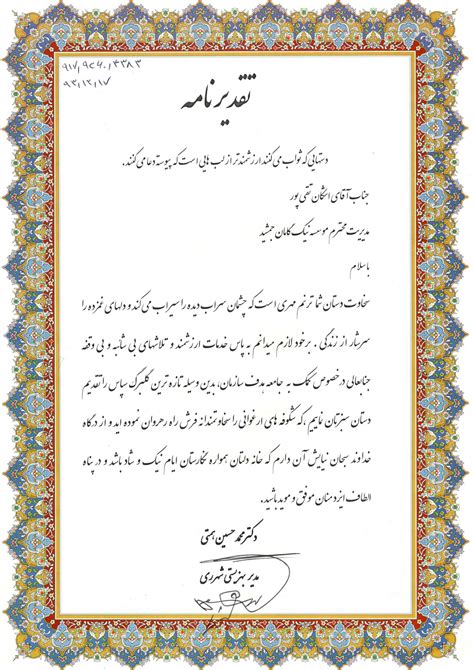 ۹۱۷/۹۶۰/۴۳۸۳
۹۳/۱۲/۱۷
تقدیر نامه
دستهایی که ثواب می کنند ارزشمند تر از لب هایی است که پیوسته دعا می کنند.
جناب آقای اشکان تقی پور
مدیریت محترم موسسه نیک گامان جمشید
باسلام
سخاوت دستان شما ترنم مهری است که چشمان سراب دیده را سیراب می کند و دلهای غمزده را
سرشار از زندگی . برخود لازم میدانم به پاس خدمات ارزشمند و تلاشهای بی شائبه و بی وقفه
جنابعالی درخصوص کمک به جامعه هدف سازمان، بدین وسیله تازه ترین گلبرگ سپاس را تقدیم
دستان سبزتان نماییم ،که شکوفه های ارغوانی را سخاوتمندانه فرش راه رهروان نموده اید و از درگاه
خداوند سبحان نیایش آن دارم که خانه دلتان همواره نگارستان ایام نیک و شاد باشد و در پناه
الطاف ایزد منان موفق و موید باشید.
دکتر محمد حسین همتی
مدیر بهزیستی شهرری